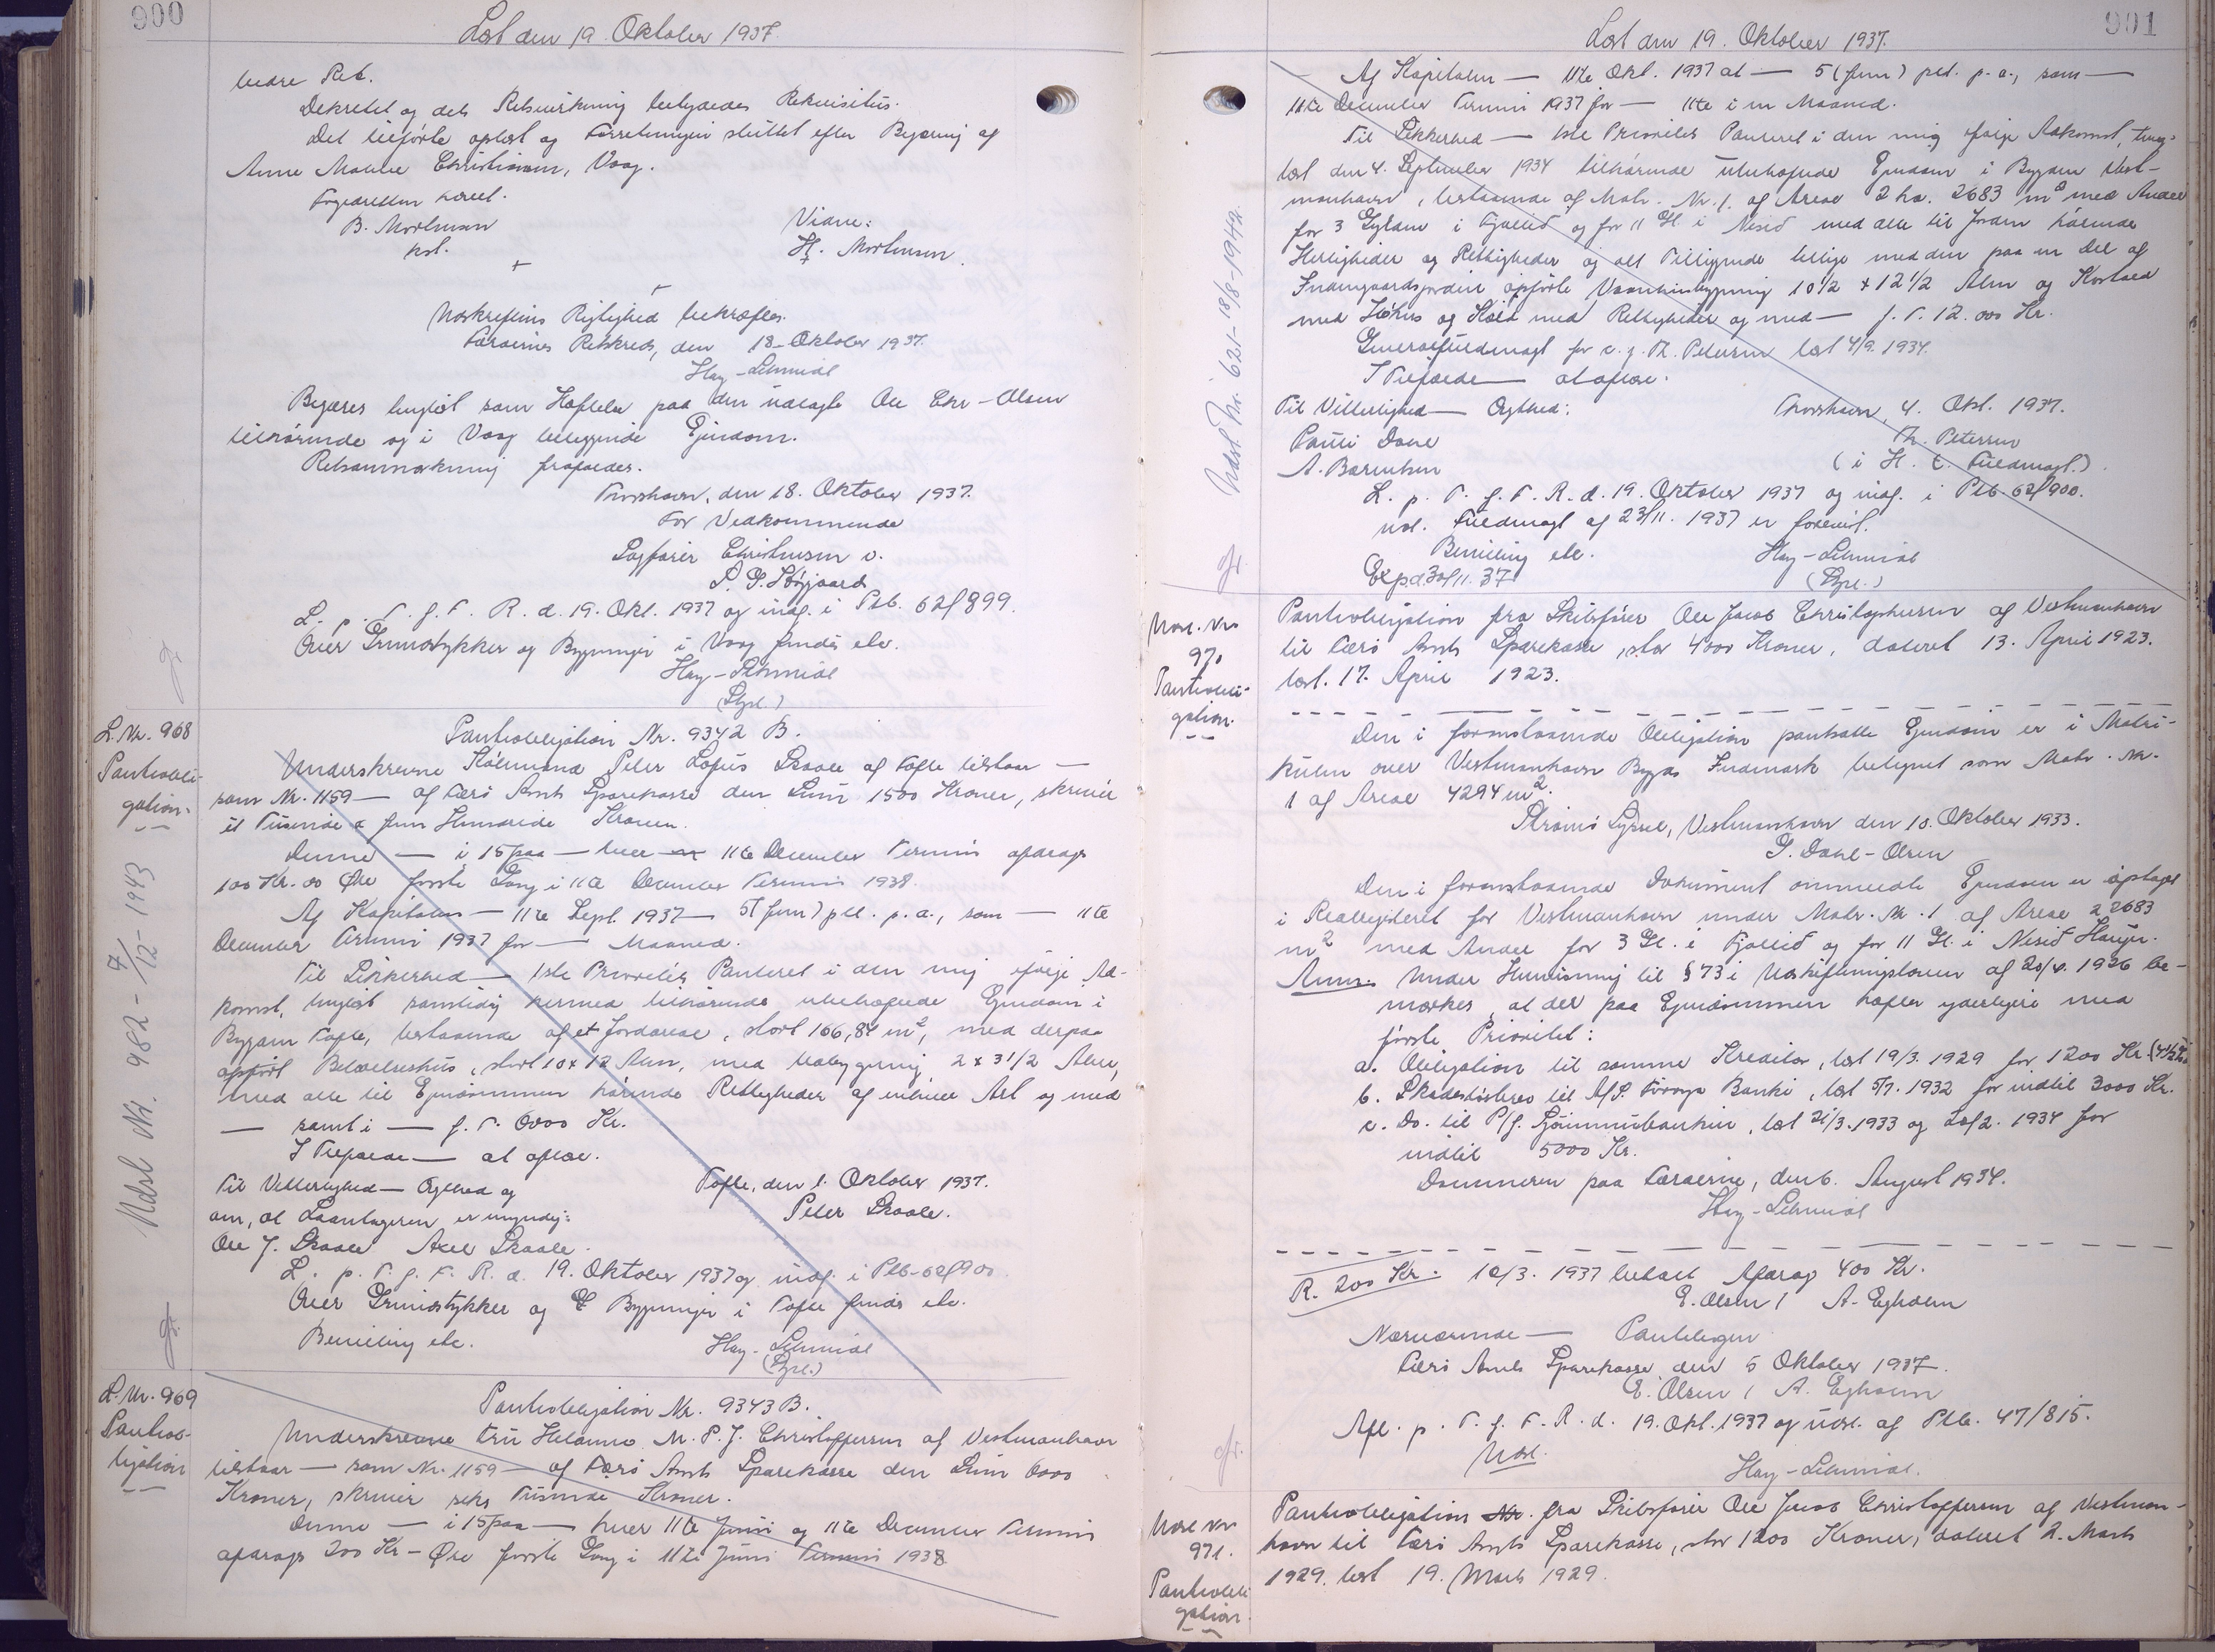 900
Læst den 19. Oktober 1937.
bedre Ret.
Dekretet og dets Retsvirkning betydedes Rekvisitus.
Det tilførte oplæst og Forretningen sluttet efter Begæring af
Anne Christiansen, Vaag.
Fogedretten hævet.
B. Mortensen
kst.
Vidne:
H. Mortensen.
Udskriftens Rigtighed bekræftes.
Færøernes Retskreds, den 18. Oktober 1937.
Hay-Schmidt
Begæres tinglyst som Hæftelse paa den udlagte Ole Chr. Olsen
tilhørende og i Vaag beliggende Ejendom.
Retsanmærkning frafaldes.
Thorshavn, den 18. Oktober 1937.
For Vedkommende
Sagfører Christensen
L. p. T. f. F. R. d. 19. Okt. 1937 og indf. i Ptb. 62/899.
Over Grundstykker og Bygninger i Vaag findes etc.
Hay-Schmidt
L. Nr. 968
Pantobli-
gation.
Pantobligation Nr. 9342 B.
Underskrevne Købmand Peter Skaale af Tofte tilstaar —
som Nr. 1159 — af Færø Amts Sparekasse den Sum 1500 Kroner, skriver
et Tusinde & fem Hundrede Kroner.
Denne — i 15 paa — hver 11te December Termin afdrags
100 Kr. 00 Øre første Gang i 11te December Termin 1938.
Af Kapitalen — 11te Sept. 1937 — 5 (fem) pct. p. a., som — 11te
December Termin 1937 for — Maaned.
Til Sikkerhed — 1ste Prioritets Panteret i den mig ifølge Ad-
komst, tinglæst samtidig hermed tilhørende ubehæftede Ejendom i
Bygden Tofte, bestaaende af et Jordareal, stort 166,84 m², med derpaa
opført Beboelseshus, stort 10 x 12 Alen, med Udbygning 2 x 3 1/2 Alen,
med alle til Ejendommen hørende Rettigheder af enhver Art og med
— samt i — f. T. 6000 Kr.
I Tilfælde — at aflæse.
Til Vitterlighed — Ægthed og
om, at Laantageren er myndig:
Ole J. Skaale Axel Skaale.
Tofte, den 1. Oktober 1937.
Peter Skaale.
L. p. T. f. F. R. d. 19. Oktober 1937 og indf. i Ptb. 62/900.
Over Grundstykker og Bygninger i Tofte findes etc.
Bevilling etc.
Hay-Schmidt
Udsl Nr. 982 - 7/12-1943
L. Nr. 969
Pantob-
ligation
Pantobligation Nr. 9343 B.
Underskrevne Fru Helanna M. P. J. Christoffersen af Vestmanhavn
tilstaar — som Nr. 1159 — af Færø Amts Sparekasse den Sum 6000
Kroner, skriver seks Tusinde Kroner.
Denne — i 15 paa — hver 11te Juni og 11te December Termin
afdrags 200 Kr - Øre første Gang i 11te Juni Termin 1938
901
Læst den 19. Oktober 1937.
Af Kapitalen — 11te Okt. 1937 at — 5 (fem) pct. p. a., som —
11te December Termin 1937 for — 11te i en Maaned.
Til Sikkerhed — 1ste Prioritets Panteret i den mig ifølge Adkomst, ting-
læst den 4. September 1934 tilhørende ubehæftede Ejendom i Bygden Vest-
manhavn, bestaaende af Matr. Nr. 1. af Areal 2 ha. 2683 m² med Andel
for 3 Gylden i Fjallið og for 11 Gl. i Nesið med alle til Jorden hørende
Herligheder og Rettigheder og alt Tilliggende tillige med den paa en Del af
Indmarksjorden opførte Vaaningsbygning 10 1/2 x 12 1/2 Alen og Kostald
med Höhus og Kæld med Rettigheder og med — f. T. 12.000 Kr.
Generalfuldmagt for Th. Petersen læst 4/9. 1934.
I Tilfælde — at aflæse.
Til Vitterlighed — Ægthed:
Poul Dahl
A. Barentsen
Thorshavn, 4. Okt. 1937.
Th. Petersen
(i H. t. Fuldmagt.)
L. p. T. f. F. R. d. 19. Oktober 1937 og indf. i Ptb. 62/900.
Fuldmagt af 23/11. 1937 er forevist.
Bevilling etc.
Hay-Schmidt
Exp.d. 30/11. 37
Udsl. Nr. 621 - 18/8-1944.
Udsl. Nr.
970
Pantobli-
gation.
Pantobligation fra Skibsfører Ole Jacob Christophersen af Vestmanhavn
til Færø Amts Sparekasse, stor 4000 Kroner, dateret 13. April 1923.
læst. 17. April 1923.
Den i foranstaaende Obligation pantsatte Ejendom er i Matri-
kulen over Vestmanhavn Bygds Indmark betegnet som Matr. Nr.
1 af Areal 4294 m².
Strømø Syssel, Vestmanhavn den 10. Oktober 1933.
P. Dahl-Olsen
Den i foranstaaende Dokument ommeldte Ejendom er optaget
i Realregisteret for Vestmanhavn under Matr. Nr. 1 af Areal 22683
m² med Andel for 3 Gl. i Fjallið og for 11 Gl. i Nesið Haugen.
Anm. Under Henvisning til § 73 i Udskiftningsloven af 20/4. 1926 be-
mærkes, at der paa Ejendommen hæfter yderligere med
første Prioritet:
a. Obligation til samme Kreditor, læst 19/3. 1929 for 1200 Kr.
b. Skadesløsbrev til A/S. Føroya Banki, læst 5/7. 1932 for indtil 3000 Kr.
c. Do. til P/f. Sjóvinnubankin, læst 21/3. 1933 og 20/2. 1934 for
indtil 5000 Kr.
Dommeren paa Færøerne, den 6. August 1934.
Hay-Schmidt
R. 200 Kr. 10/3. 1937 betalt Afdrag 400 Kr.
E. Olsen / A. Egholm
Nærværende — Pantebogen
Færø Amts Sparekasse, den 5 Oktober 1937.
E. Olsen / A. Egholm
Afl. p. T. f. F. R. d. 19. Okt. 1937 og udsl. af Ptb. 47/815.
Udsl.
Hay-Schmidt.
Udsl Nr
971.
Pantobli-
gation.
Pantobligation fra Skibsfører Ole Jacob Christoffersen af Vestman-
havn til Færø Amts Sparekasse, stor 1200 Kroner, dateret 2. Marts
1929. læst 19. Marts 1929.